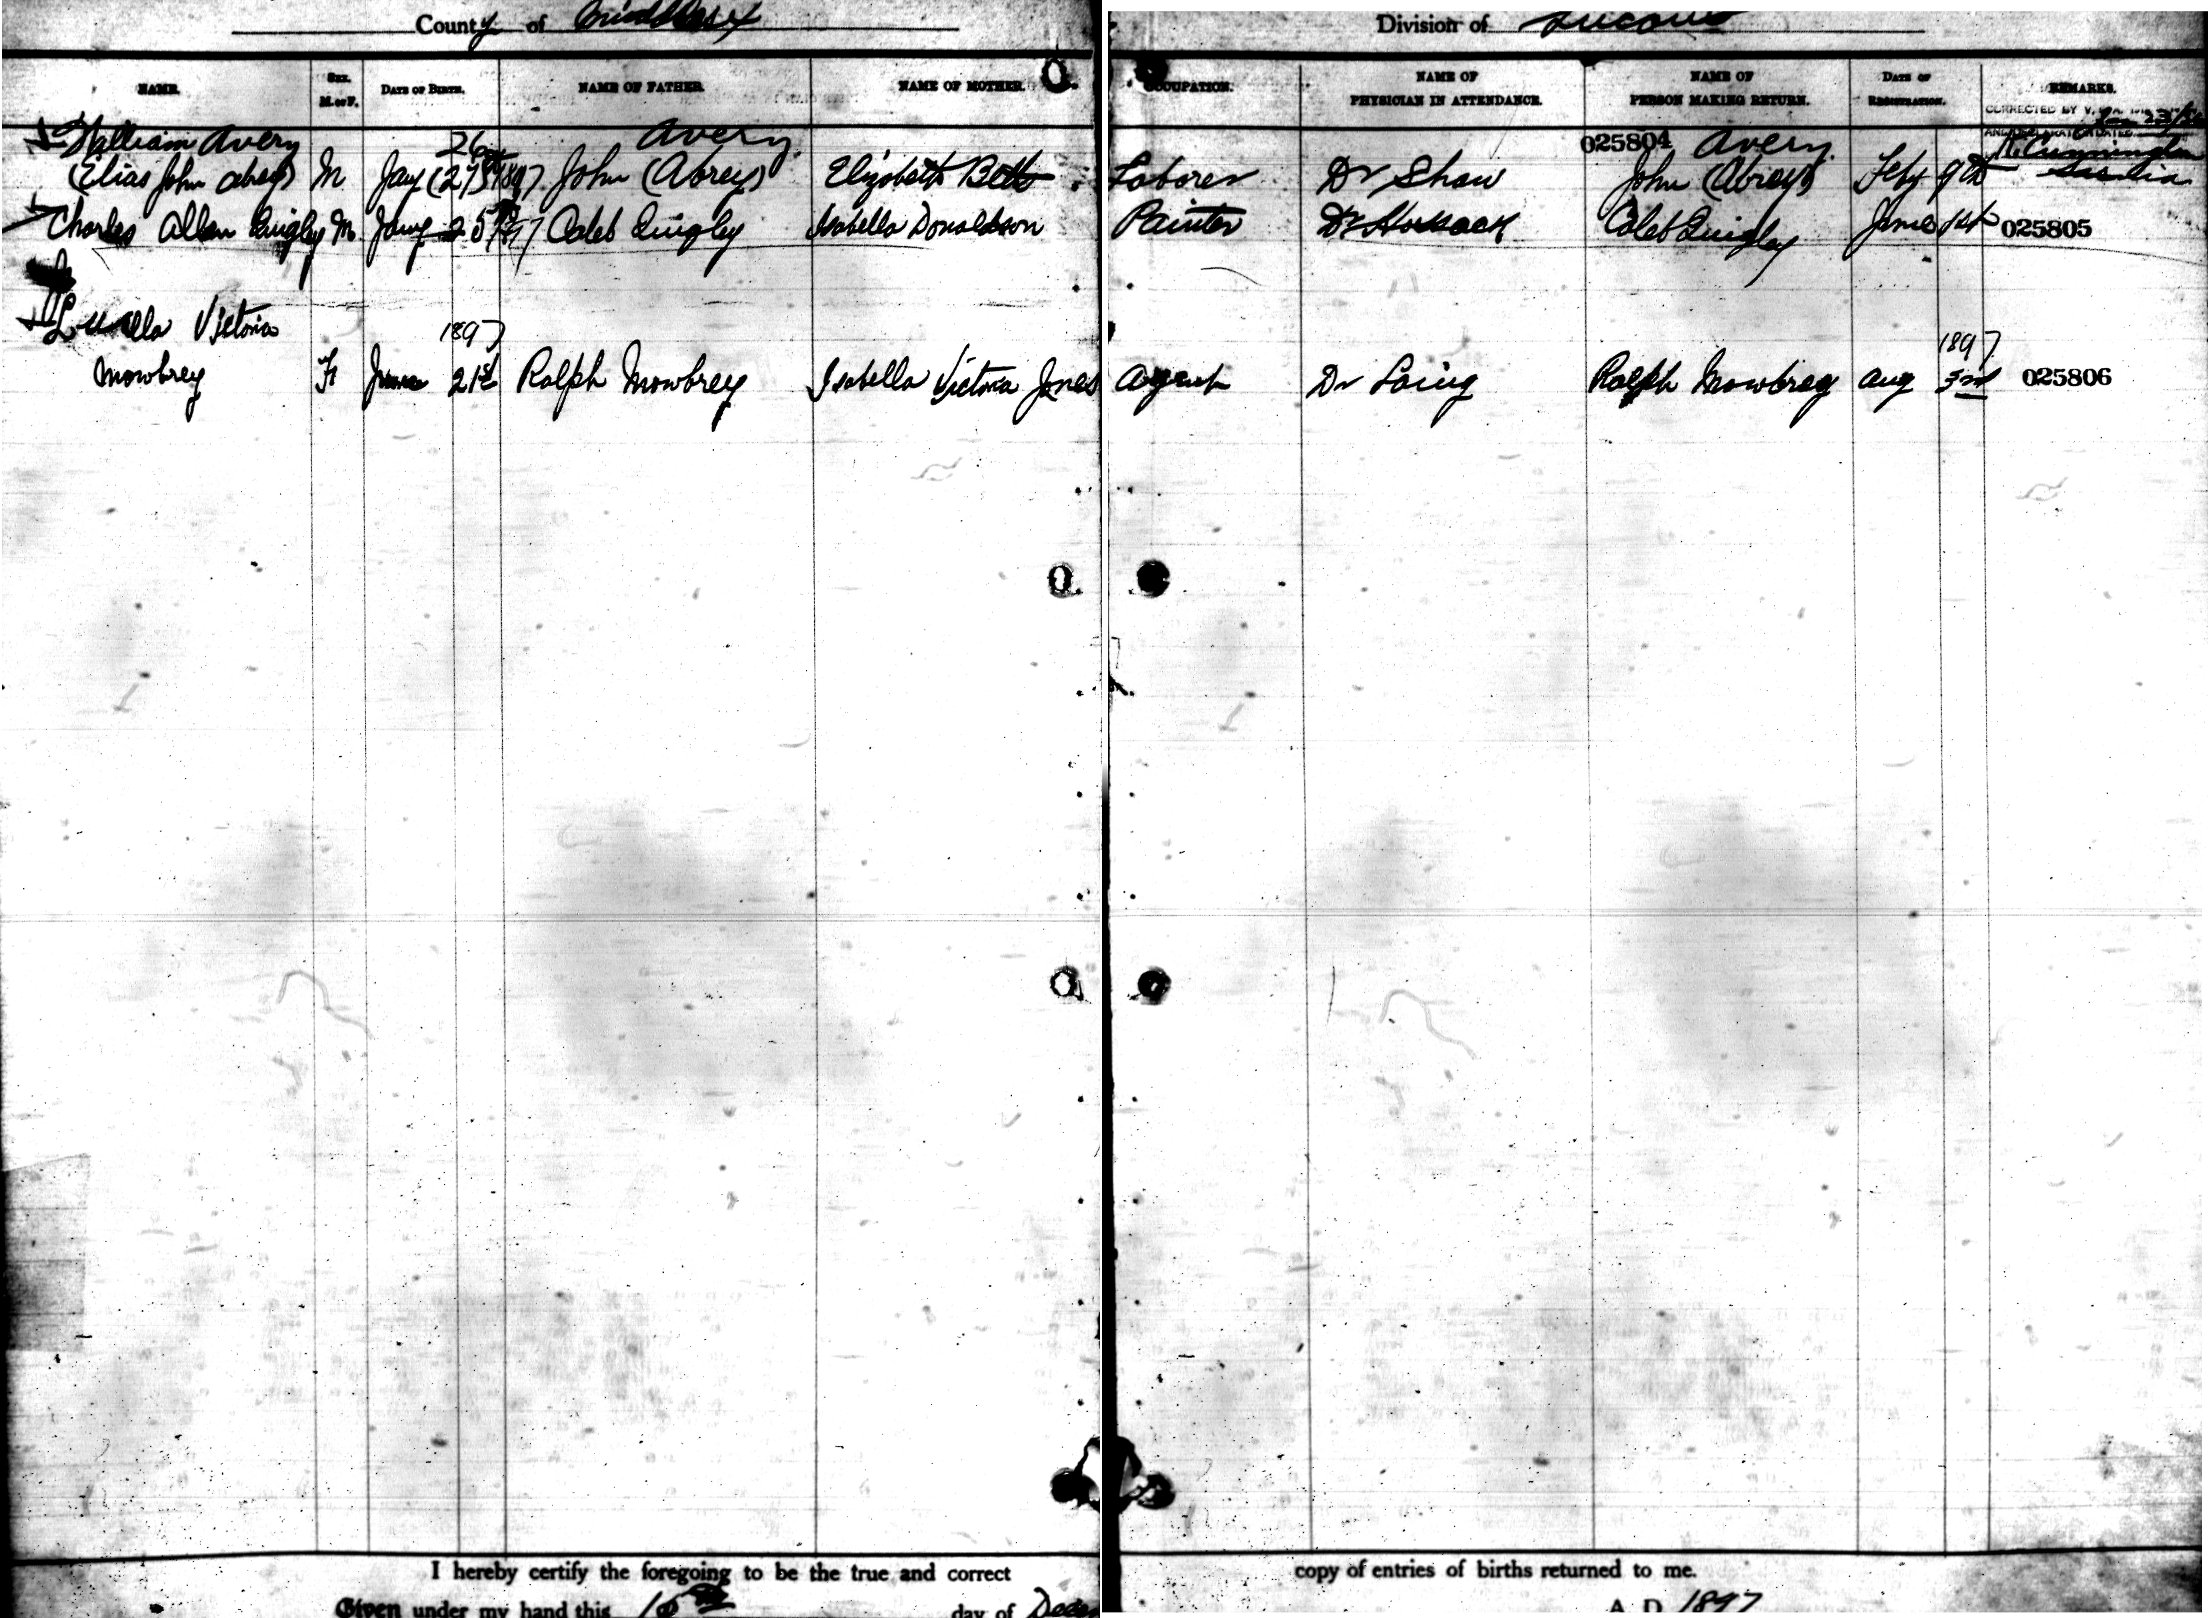 County of Middlesex Division of Lucan
NAME. Sex. M. or F. DATE OF BIRTH. NAME OF FATHER. NAME OF MOTHER. OCCUPATION. NAME OF PHYSICIAN IN ATTENDANCE. NAME OF PERSON MAKING RETURN. DATE OF REGISTRATION. REMARKS.
CORRECTED BY V.
William Avery 26 Avery 025804 Avery
(Elias John Abrey) M Jany (27th 1897 John (Abrey) Elizabeth Betts Laborer Dr Shaw John (Abrey) Feby 9th
Charles Allan Quigley M Jany 25th 97 Caleb Quigley Isabella Donaldson Painter Dr Hossack Caleb Quigley June 1st 025805
Luella Victoria 1897 1897
Mowbrey F June 21st Ralph Mowbrey Isabella Victoria Jones Agent Dr Laing Ralph Mowbray Aug 3rd 025806
I hereby certify the foregoing to be the true and correct copy of entries of births returned to me.
Given under my hand this 15th day of A. D. 1897